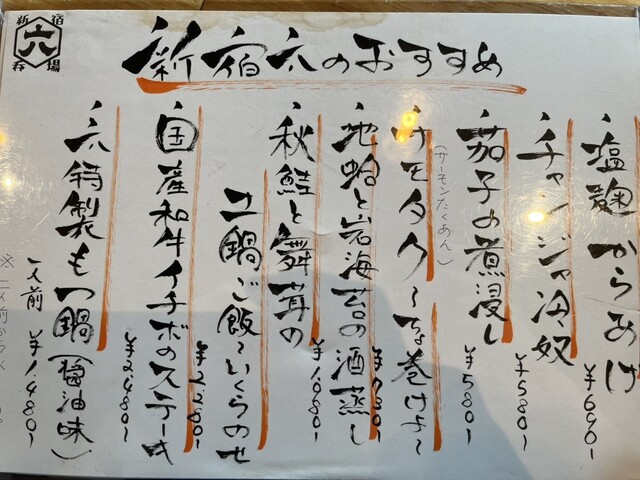 新宿
六
呑場
新宿六のおすすめ
・塩麹からあげ ¥690-
・チャンジャ冷奴 ¥580-
・茄子の煮浸し ¥580-
・サモタク〜ちょ巻けよ〜
(サーモンたくあん) ¥1080-
・地蛤と岩海苔の酒蒸し
・秋鮭と舞茸の
土鍋ご飯〜いくらのせ ¥2280-
・国産和牛イチボのステーキ ¥2480-
・六特製もつ鍋(醤油味)
一人前 ¥1480-